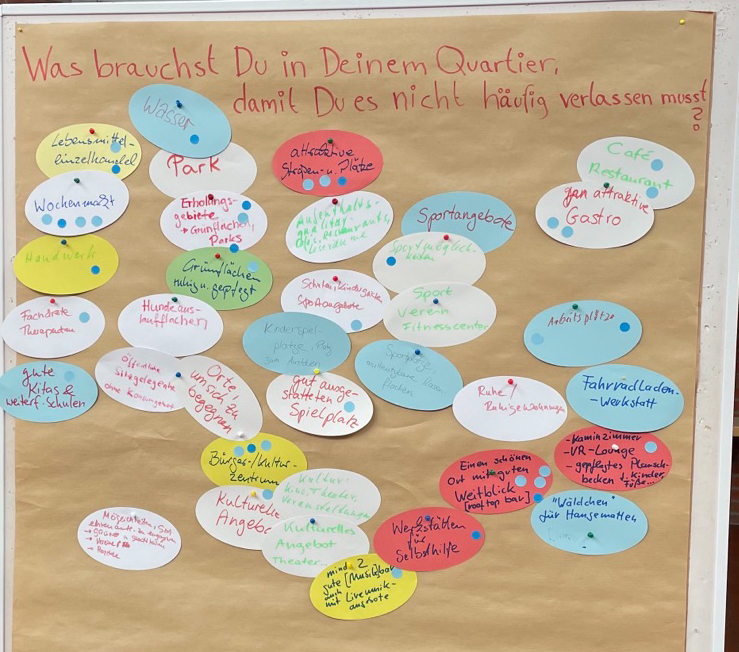 Was brauchst Du in Deinem Quartier,
damit Du es nicht häufig verlassen musst
?
Wasser
Lebensmittel-
einzelhandel
Park
attraktive
Straßen- u. Plätze
Café
Restaurant
Wochenmarkt
Erholungs-
gebiete
→ Grünflächen,
Parks
Aufenthalts-
qualität
Sportangebote
gan attraktive
Gastro
Handwerk
Grünflächen
ruhig u. gepflegt
Sportmöglich-
keiten
Fachärzte
Therapeuten
Hundeaus-
laufflächen
Schulen, Kindergärten
Sportangebote
Sport
Verein
Fitnesscenter
Arbeitsplätze
gute
Kitas &
weiterf. Schulen
öffentliche
Sitzgelegenh.
ohne Konsumgebot
Orte,
um sich zu
begegnen
Kinderspiel-
plätze
gut ausge-
statteten
Spielplatz
Sportplätze
Ruhe/
Ruhige Wohnungen
Fahrradladen-
-Werkstatt
Bürger-/Kultur-
zentrum
Kultur
Kino, Theater,
Veranstaltungen
Kulturelle
Angebo
Kulturelles
Angebot
Theater...
Einen schönen
Ort mit guten
Weitblick
[rooftop bar]
-Kaminzimmer
-VR-Lounge
-gepflegtes Plansch-
becken f. Kinder,
Füße...
Werkstätten
für
Selbsthilfe
"Wäldchen"
für Hängematten
mind. 2
gute [Musik]bar
auch
mit Livemusik-
angebote